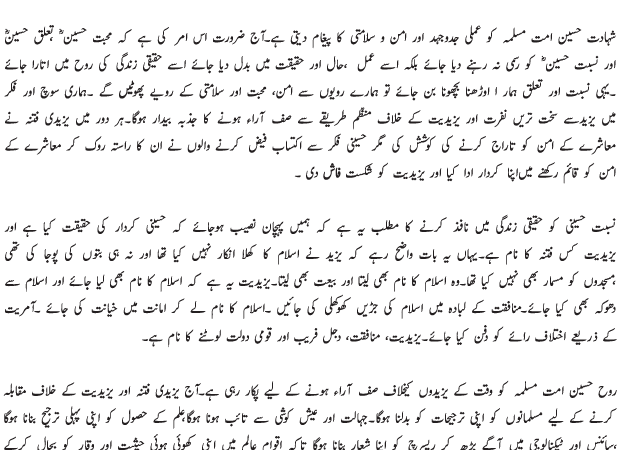 شہادت حسین امت مسلمہ کو عملی جدوجہد اور امن و سلامتی کا پیغام دیتی ہے۔آج ضرورت اس امر کی ہے کہ محبت حسینؓ تعلق حسینؓ
اور نسبت حسینؓ کو رسمی نہ رہنے دیا جائے بلکہ اسے عمل ،حال اور حقیقت میں بدل دیا جائے اسے حقیقی زندگی کی روح میں اتارا جائے
۔یہی نسبت اور تعلق ہمار ا اوڑھنا بچھونا بن جائے تو ہمارے رویوں سے امن، محبت اور سلامتی کے رویے پھوٹیں گے ۔ہماری سوچ اور فکر
میں یزیدسے سخت تریں نفرت اور یزیدیت کے خلاف منظم طریقے سے صف آراء ہونے کا جذبہ بیدار ہوگا۔ہر دور میں یزیدی فتنہ نے
معاشرے کے امن کو تاراج کرنے کی کوشش کی مگر حسینی فکر سے اکتساب فیض کرنے والوں نے ان کا راستہ روک کر معاشرے کے
امن کو قائم رکھنے میںاپنا کردار ادا کیا اور یزیدیت کو شکست فاش دی ۔
نسبت حسینی کو حقیقی زندگی میں نافذ کرنے کا مطلب یہ ہے کہ ہمیں پہچان نصیب ہوجائے کہ حسینی کردار کی حقیقت کیا ہے اور
یزیدیت کس فتنہ کا نام ہے۔یہاں یہ بات واضح رہے کہ یزید نے اسلام کا کھلا انکار نہیں کیا تھا اور نہ ہی بتوں کی پوجا کی تھی
،مسجدوں کو مسمار بھی نہیں کیا تھا۔وہ اسلام کا نام بھی لیتا اور بیعت بھی لیتا۔یزیدیت یہ ہے کہ اسلام کا نام بھی لیا جائے اور اسلام سے
دھوکہ بھی کیا جائے۔منافقت کے لبادہ میں اسلام کی جڑیں کھوکھلی کی جائیں ۔اسلام کا نام لے کر امانت میں خیانت کی جائے ۔آمریت
کے ذریعے اختلاف رائے کو دفن کیا جائے۔یزیدیت، منافقت، دجل فریب اور قومی دولت لوٹنے کا نام ہے۔
روح حسین امت مسلمہ کو وقت کے یزیدوں کیخلاف صف آراء ہونے کے لیے پکار رہی ہے۔آج یزیدی فتنہ اور یزیدیت کے خلاف مقابلہ
کرنے کے لیے مسلمانوں کو اپنی ترجیحات کو بدلنا ہوگا۔جہالت اور عیش کوشی سے تائب ہونا ہوگا،علم کے حصول کو اپنی پہلی ترجیح بنانا ہوگا
،سائنس اور ٹیکنالوجی میں آگے بڑھ کر ریسرچ کو اپنا شعار بنانا ہوگا تاکہ اقوام عالم میں اپنی کھوئی ہوئی حیثیت اور وقار کو بحال کرکے